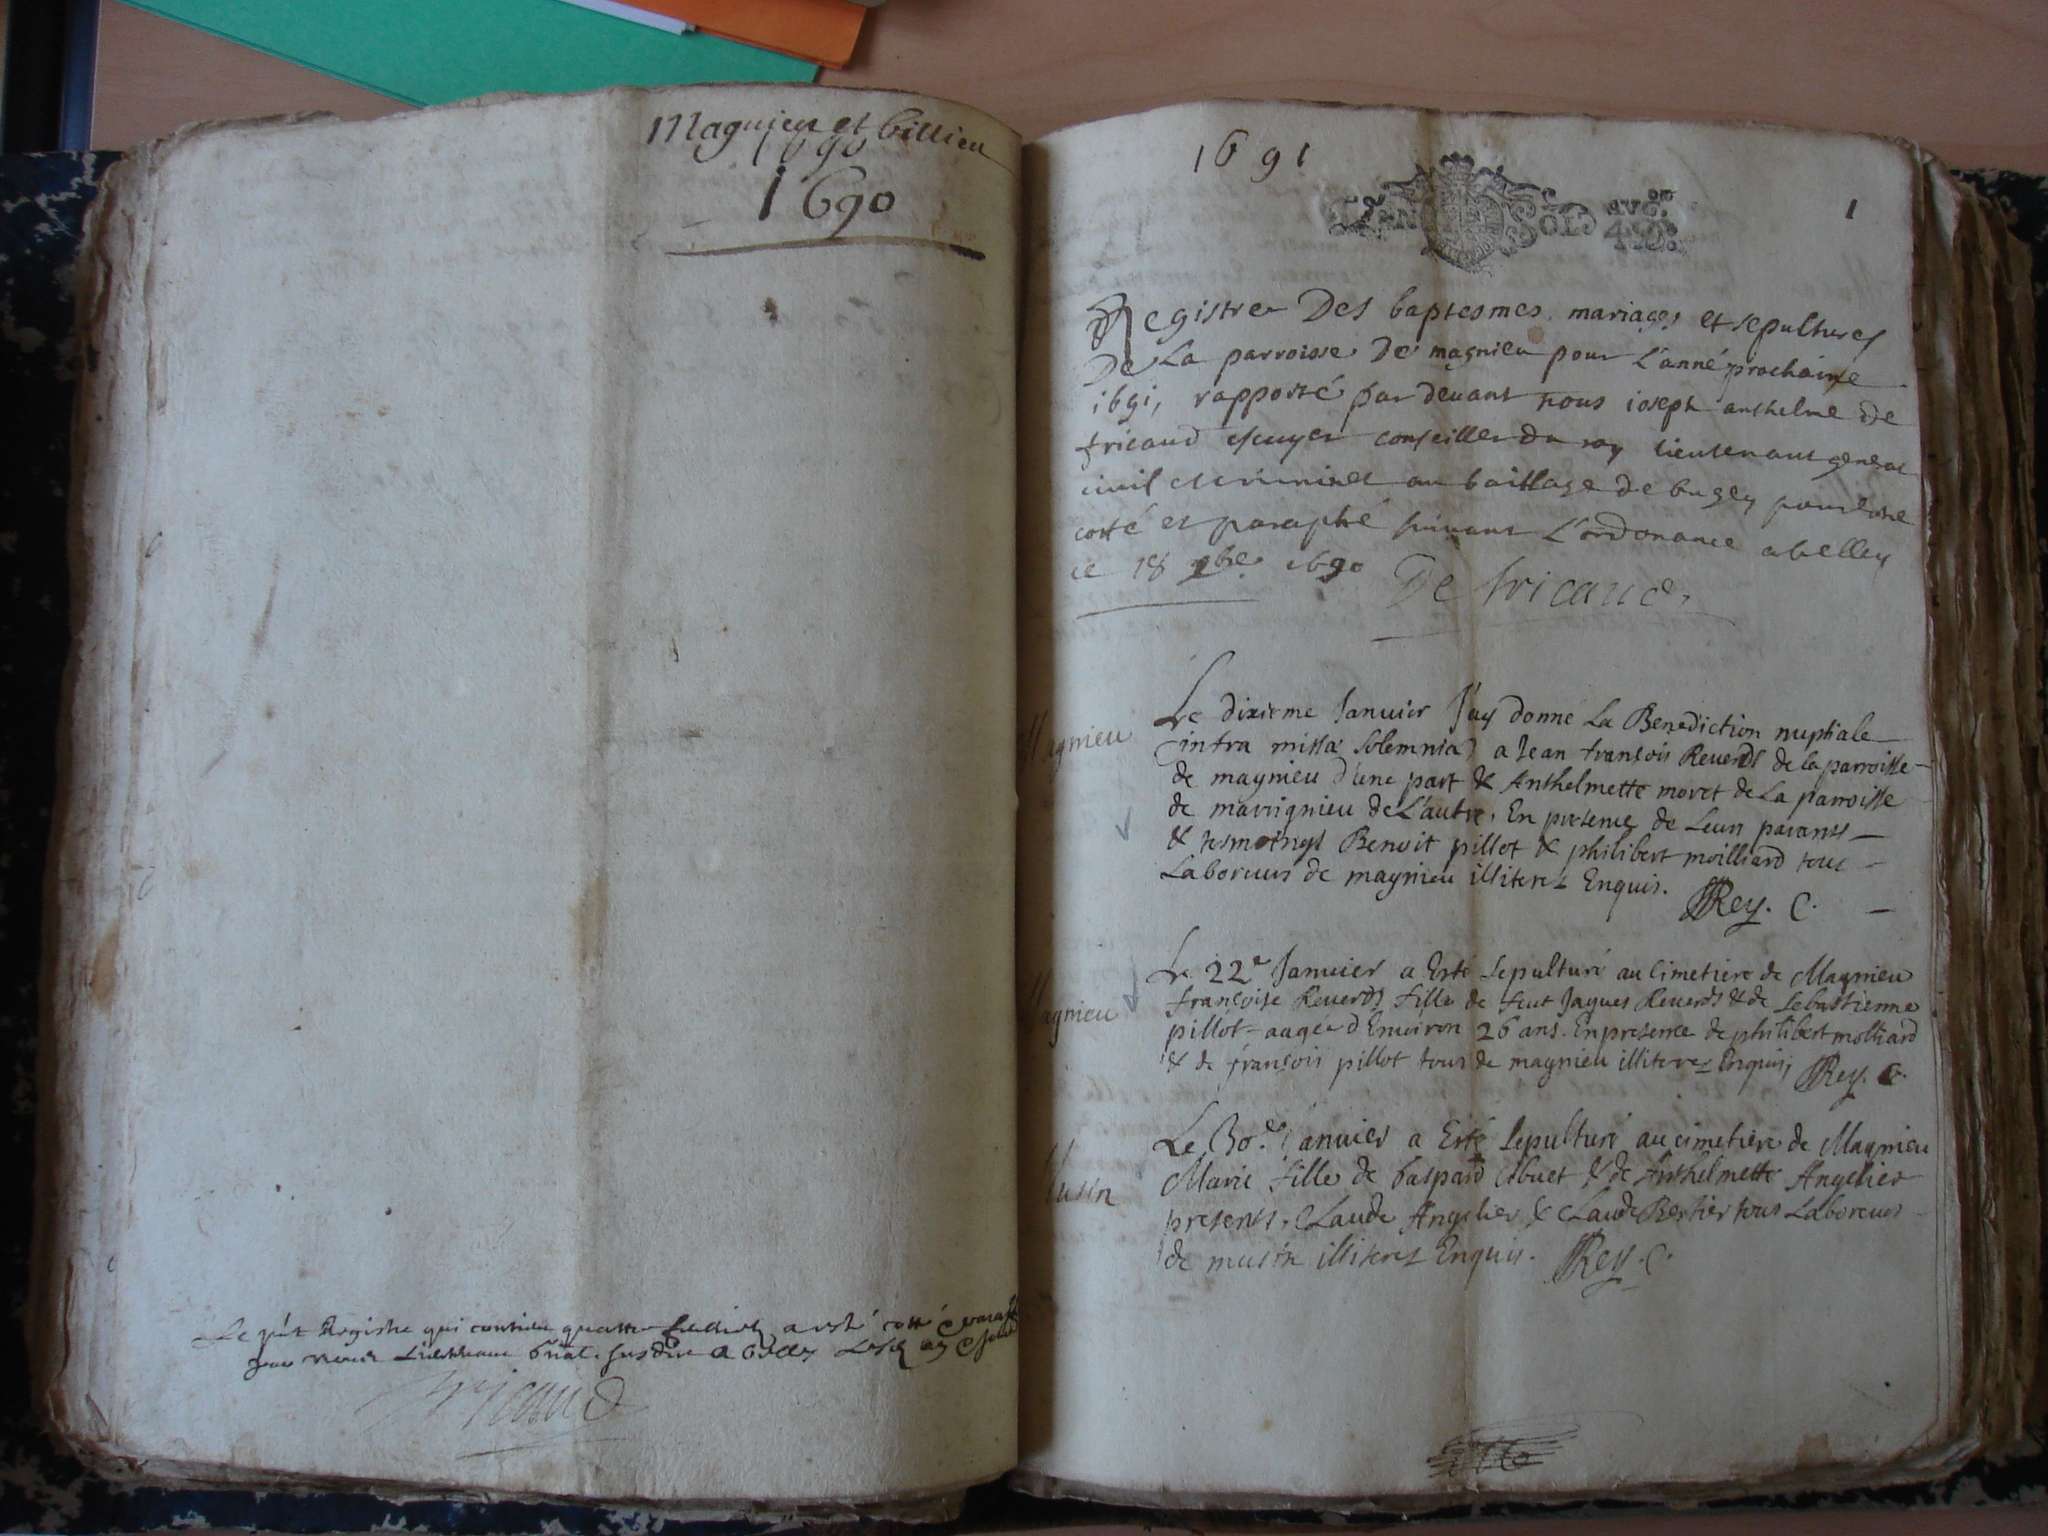 Magnieu et billieu
1690
1690
Le pnt Registre qui contient quattre feuillets a esté cotté
a belley
Tricaud
1691
1
SOL
4
Registre Des baptesmes, mariages et sepultures
De La parroisse De magnieu pour L'anné prochaine
1691, rapporté par devant nous ioseph anthelme De
tricaud escuyer conseiller du roy lieutenant general
civil et criminel au baillage de bugey pour estre
cotté et paraphé suivant L'ordonance a belley
ce 18 1690
De tricaud
Magnieu
Le dixieme Januier J'ay donné La Benediction nuptiale
(intra missa solemnia) a Jean françois Reuerdi de la parroisse
de magnieu d'une part & Anthelmette moret de La parroisse
de marignieu de L'autre, En presence de Leurs parants
& tesmoings Benoit pillot & philibert moilliard tous
Laboreurs de magnieu illiterez Enquis. Rey. C.
Magnieu
Le 22e Januier a Esté Sepulturé au Cimetiere de Magnieu
françoise Reuerdi fille de feut Jaques Reuerdi & de Sebastienne
pillot augée d'Enuiron 26 ans. En presence de philibert molliard
& de françois pillot tous de magnieu illiterez Enquis, Rey. C.
Musin
Le 30e Januier a Esté Sepulturé au cimetiere de Magnieu
Marie fille de gaspard & de Anthelmette Angelier
presents, Claude Angelier & Claude Bertier tous Laboreurs
de musin illiterez Enquis. Rey. C.